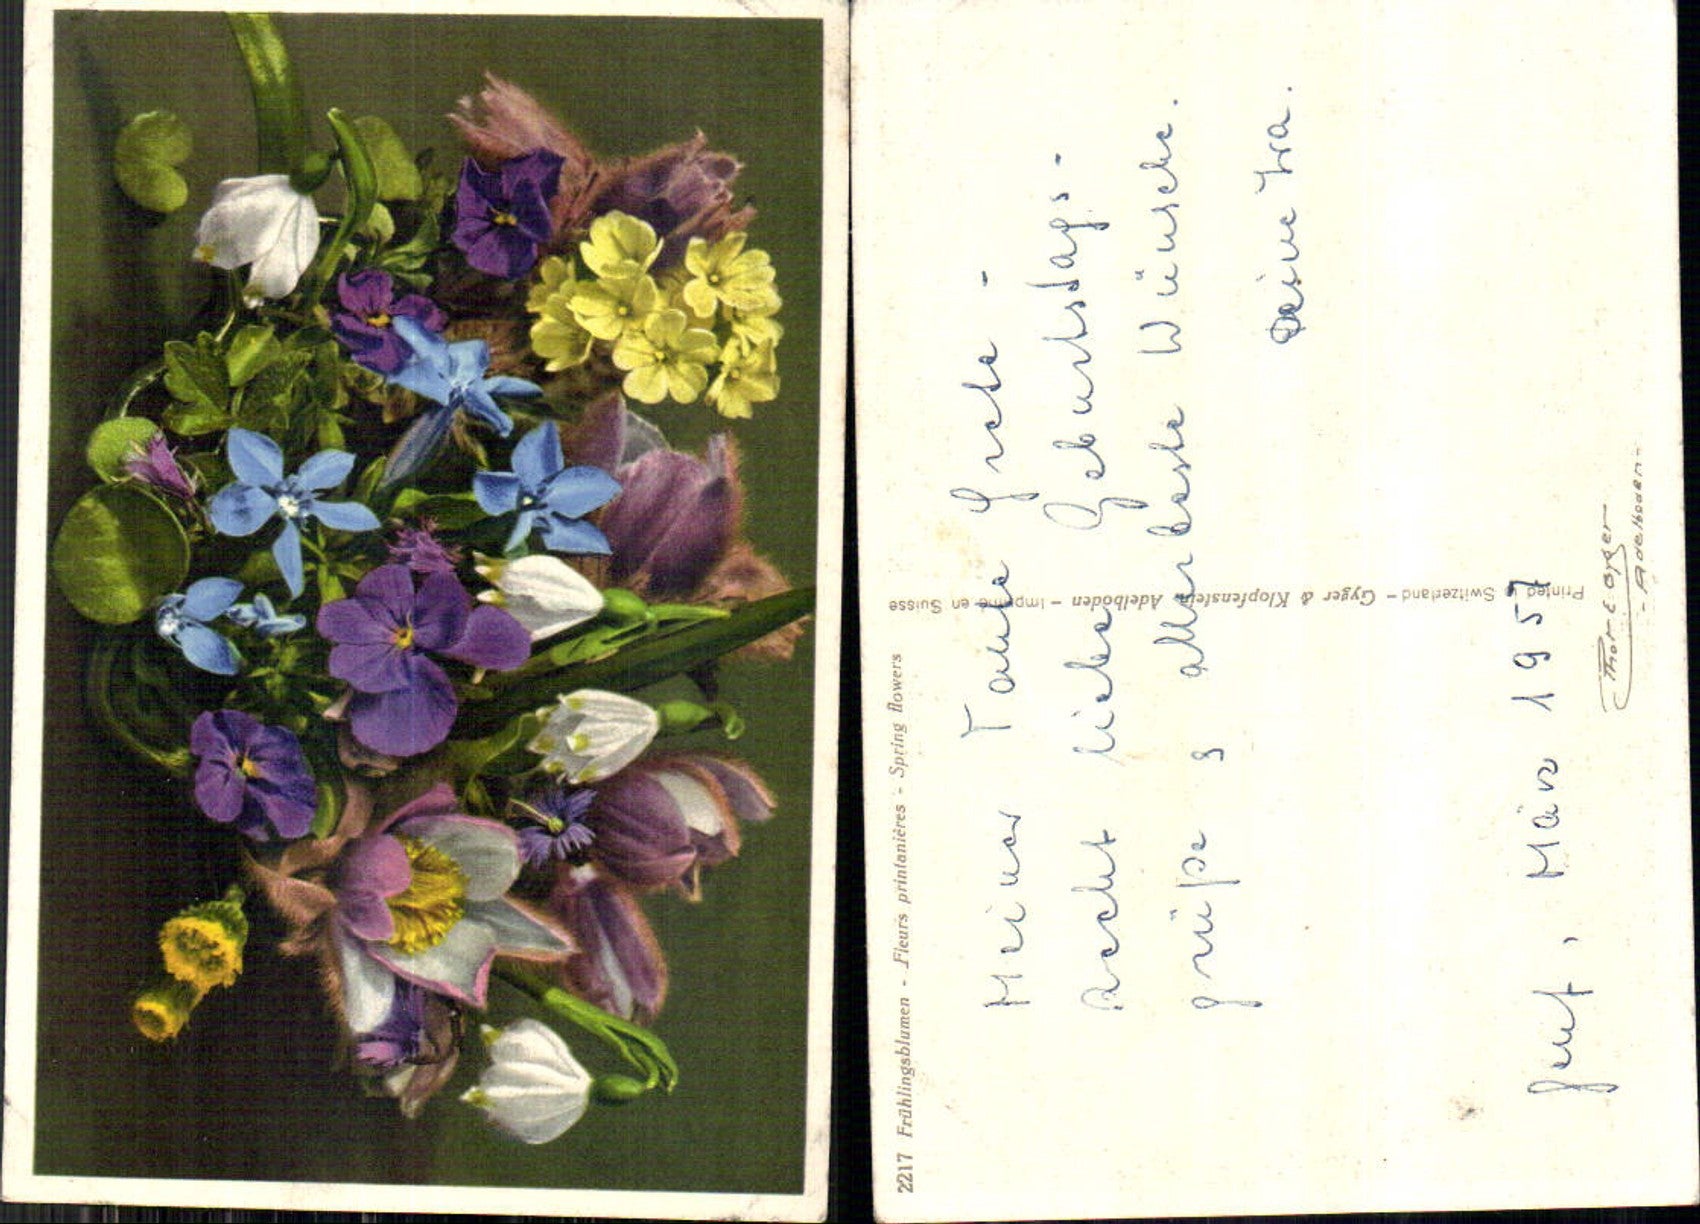 2217 Frühlingsblumen - Fleurs printanières - Spring flowers
Meiner Tante Grete -
recht liebe Geburtstags-
grüße & allerbeste Wünsche.
Deine Ira.
Genf, März 1957
Printed in Switzerland - Gyger & Klopfenstein, Adelboden - Imprimé en Suisse
Phot. E. Gyger
- Adelboden -